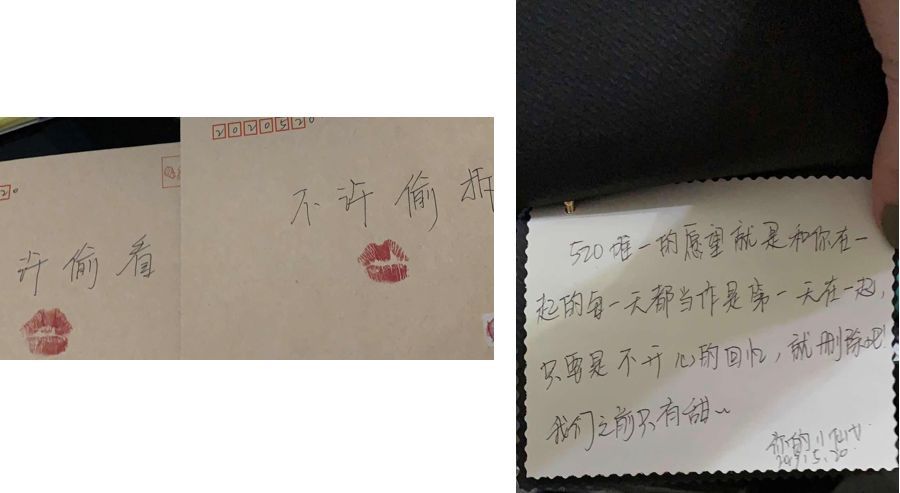 20
许偷看
2020520
不许偷拆
520唯一的愿望就是和你在一
起的每一天都当作是第一天在一起,
只要是不开心的回忆,就删除吧!
我们之前只有甜~
你的小仙女
5.20